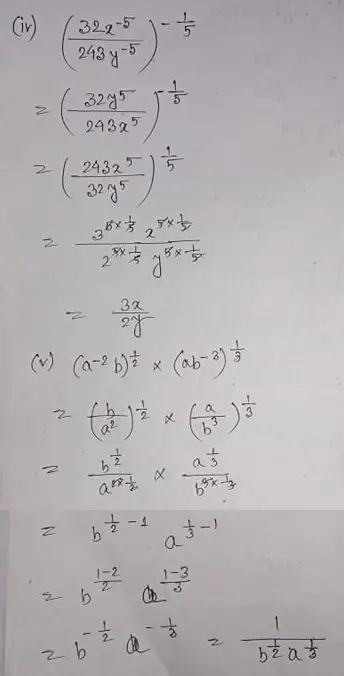 (iv) (32x^-5 / 243y^-5)^-1/5
= (32y^5 / 243x^5)^-1/5
= (243x^5 / 32y^5)^1/5
= 3^5×1/5 x^5×1/5 / 2^5×1/5 y^5×1/5
= 3x / 2y
(v) (a^-2 b)^1/2 × (ab^-3)^1/3
= (b / a^2)^1/2 × (a / b^3)^1/3
= b^1/2 / a^2×1/2 × a^1/3 / b^3×1/3
= b^1/2-1 a^1/3-1
= b^1-2/2 a^1-3/3
= b^-1/2 a^-1/3 = 1 / b^1/2 a^1/3